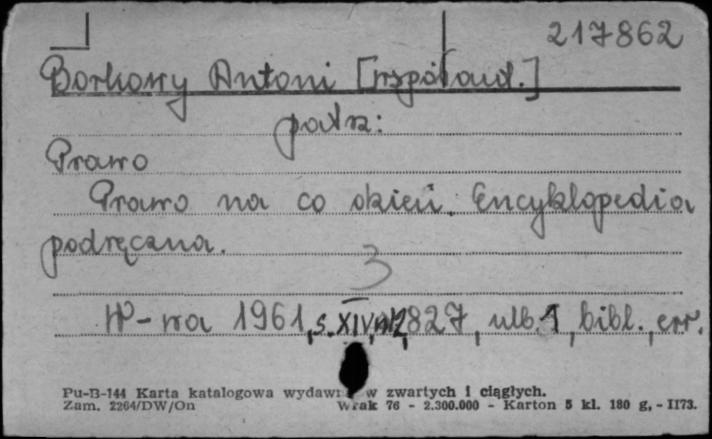 217862
Borkowy Antoni [współaut.]
patrz:
Prawo
Prawo na co dzień. Encyklopedia
podręczna.
3
W-wa 1961, s. XIV, 827, ulb. 1, bibl., err.
Pu-B-144 Karta katalogowa wydawn w zwartych i ciągłych.
Zam. 2264/DW/On Wrak 76 - 2.300.000 - Karton 5 kl. 180 g, - II73.